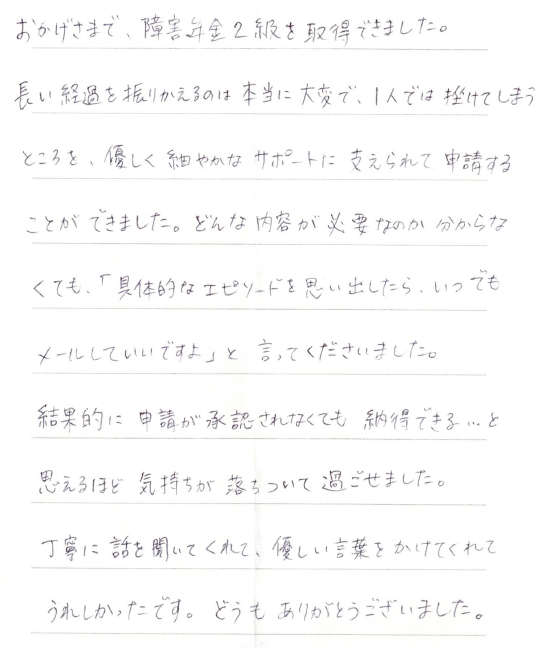 おかげさまで、障害年金2級を取得できました。
長い経過を振りかえるのは本当に大変で、1人では挫けてしまう
ところを、優しく細やかなサポートに支えられて申請する
ことができました。どんな内容が必要なのか分からな
くても、「具体的なエピソードを思い出したら、いつでも
メールしていいですよ」と言ってくださいました。
結果的に申請が承認されなくても納得できる…と
思えるほど気持ちが落ちついて過ごせました。
丁寧に話を聞いてくれて、優しい言葉をかけてくれて
うれしかったです。どうもありがとうございました。